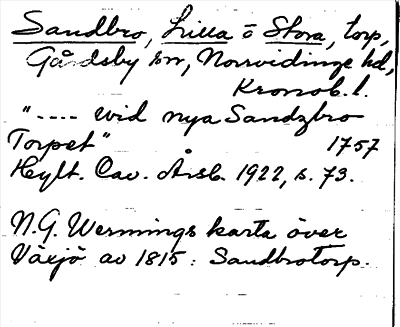 Sandbro, Lilla o Stora, torp,
Gårdsby sn, Norrvidinge hd,
Kronob. l.
"---- wid nya Sandzbro
Torpet" 1757
Heylt. Cav. Årsb. 1922, s. 73.
N.G. Wermings karta över
Växjö av 1815: Sandbrotorp.